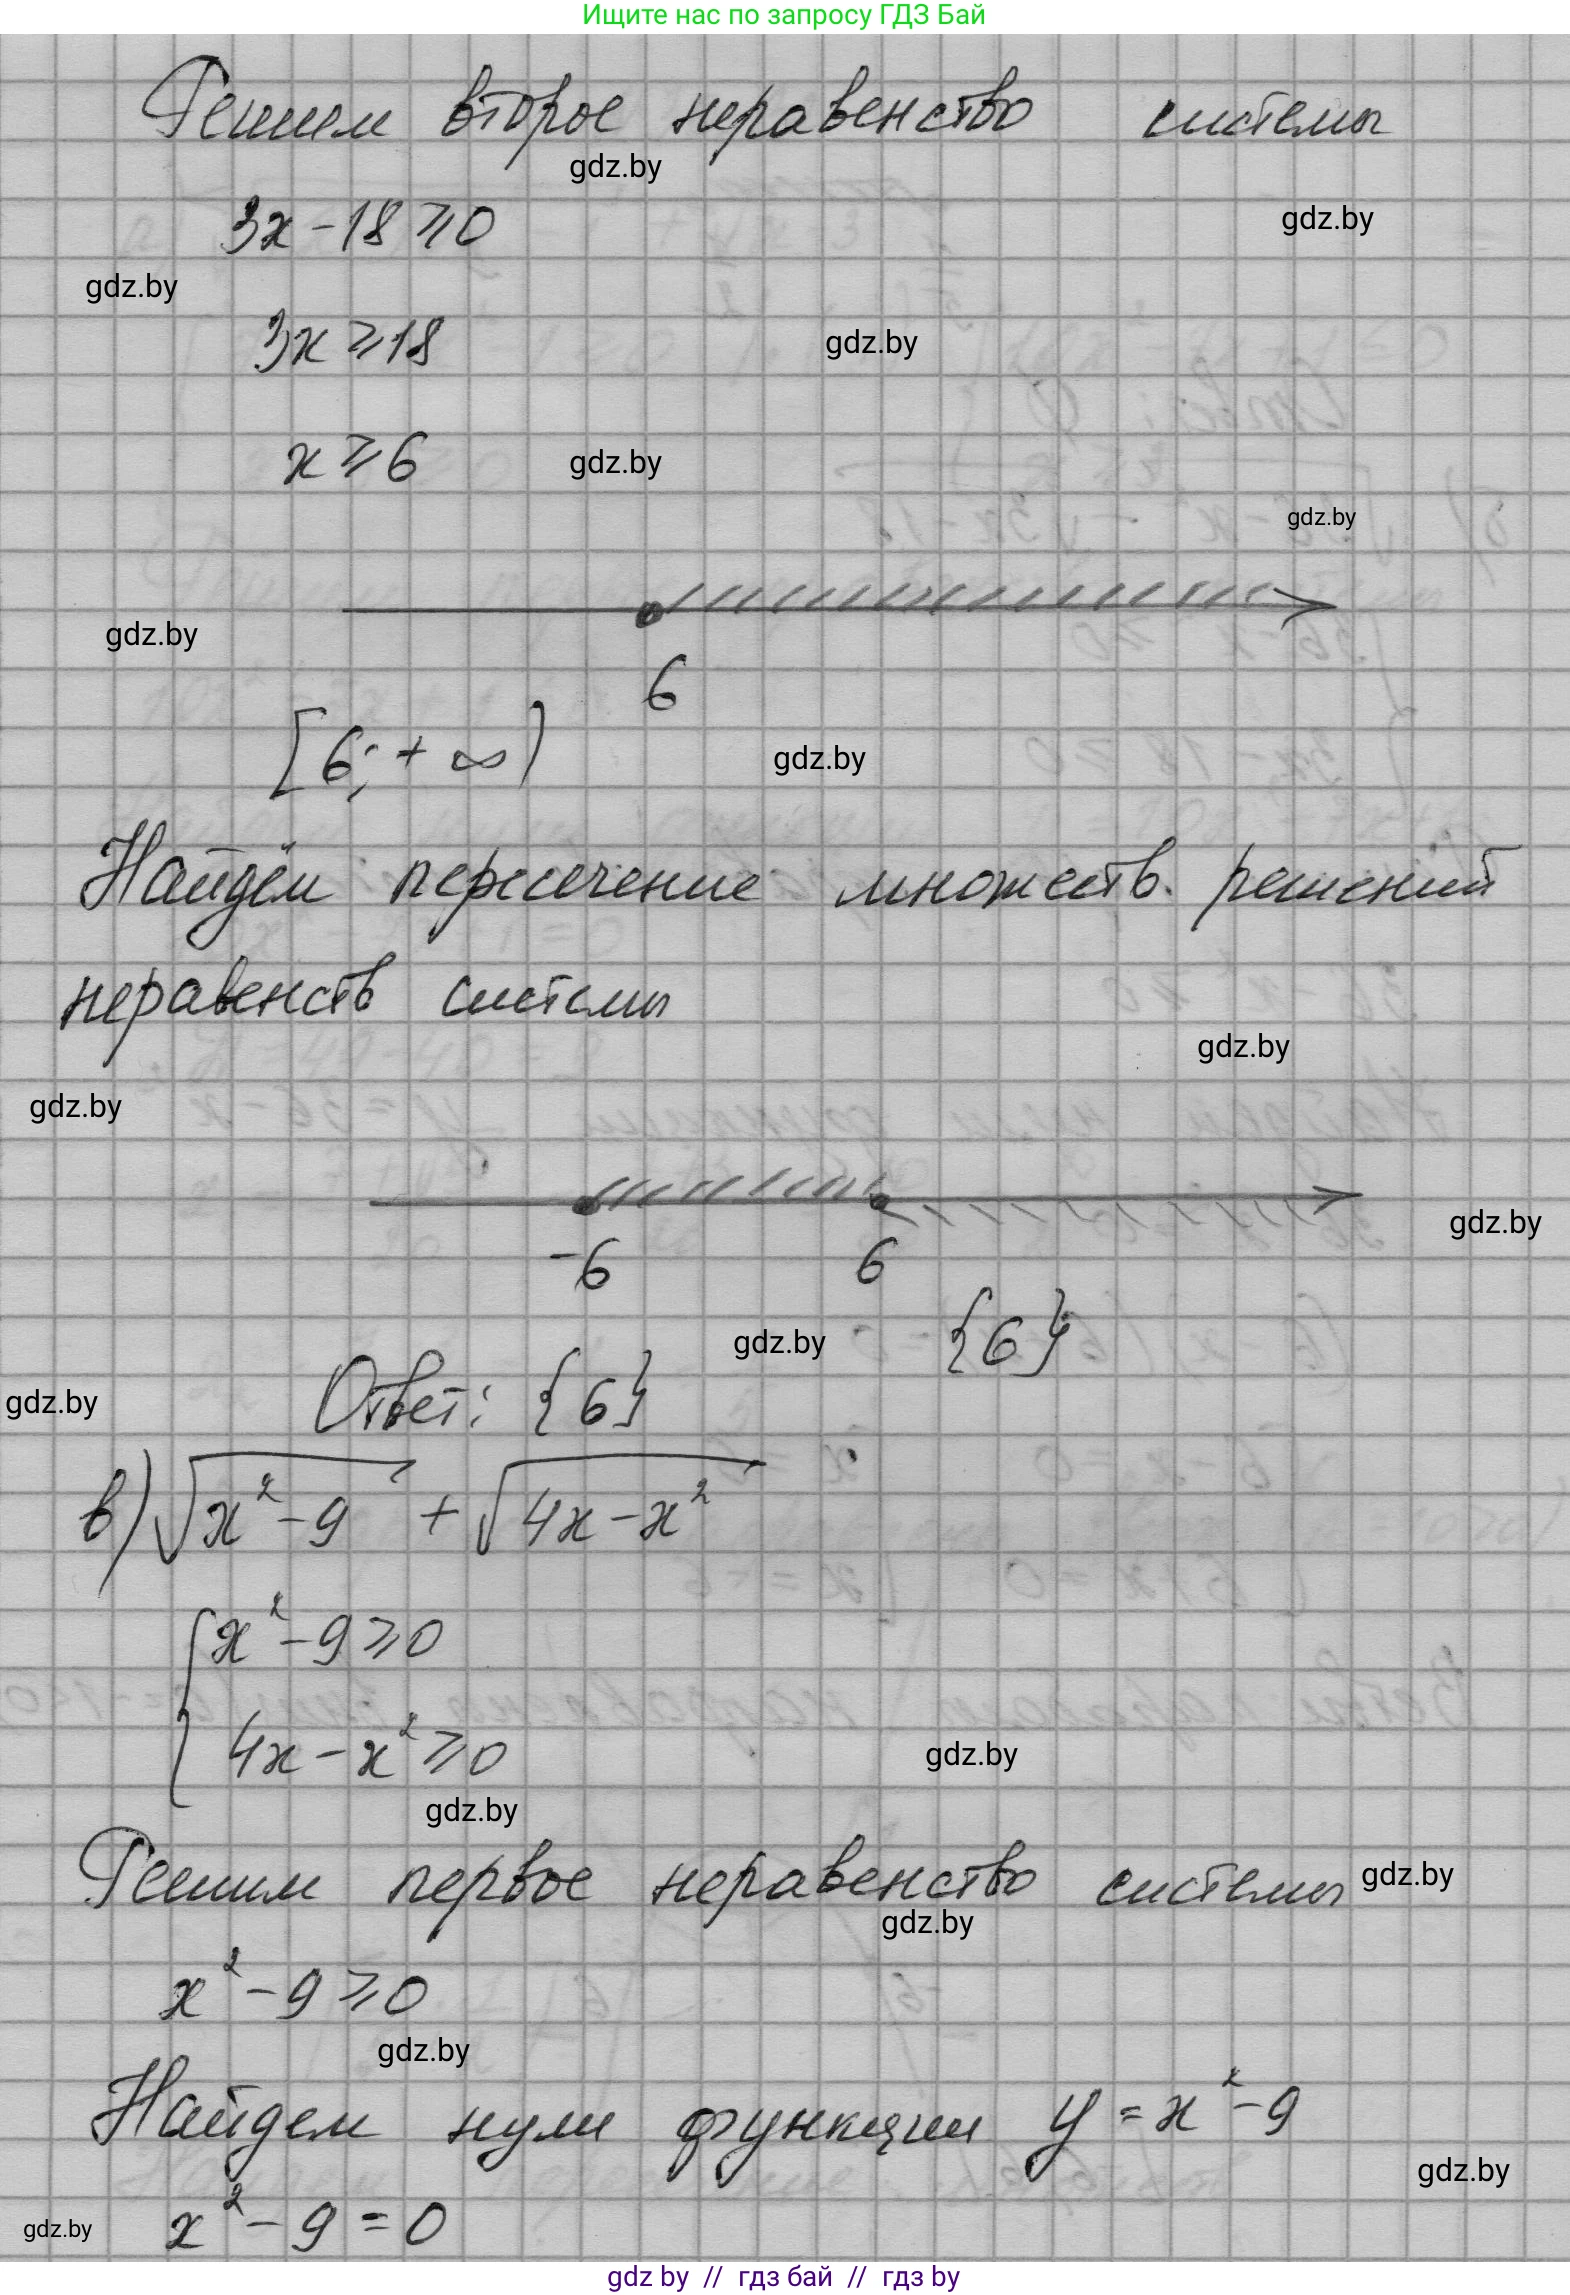 Ищите нас по запросу ГДЗ Бай
Решим второе неравенство системы
gdz.by
3x - 18 ⩾ 0
gdz.by
gdz.by
3x ⩾ 18
gdz.by
x ⩾ 6
gdz.by
gdz.by
gdz.by
6
[6; + ∞)
gdz.by
Найдём пересечение множеств решений
неравенств системы
gdz.by
gdz.by
gdz.by
-6 6
{6}
gdz.by
Ответ: {6}
gdz.by
в) √(x² - 9) + √(4x - x²)
{ x² - 9 ⩾ 0
4x - x² ⩾ 0
gdz.by
gdz.by
Решим первое неравенство системы
gdz.by
gdz.by
x² - 9 ⩾ 0
gdz.by
Найдем нули функции y = x² - 9
gdz.by
x² - 9 = 0
gdz.by
gdz by // гдз бай // гдз by